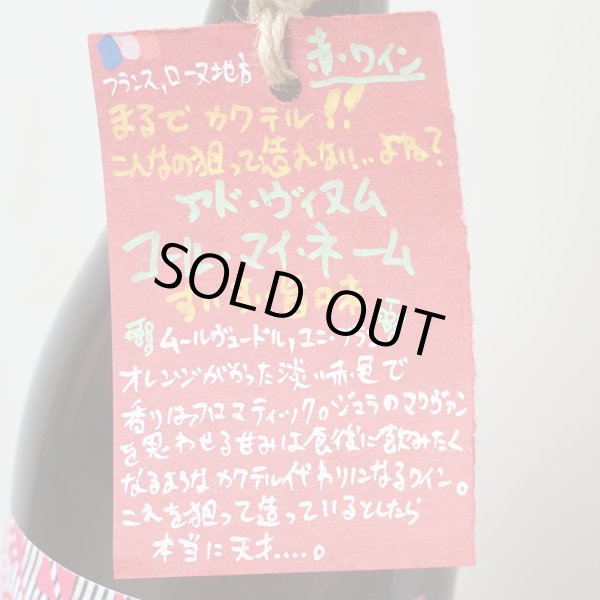 フランス,ローヌ地方
赤・ワイン
まるでカクテル!!
こんなの狙って造えない…よね?
アド・ヴィヌム
コール・マイ・ネーム
SOLD OUT
ムールヴェードル,ユニ・
オレンジがかった淡い赤色で
香りはアロマティック。ジュラのマクヴァン
を思わせる甘みは食後に飲みたく
なるようなカクテル代わりになるワイン。
これを狙って造っているとしたら
本当に天才....。